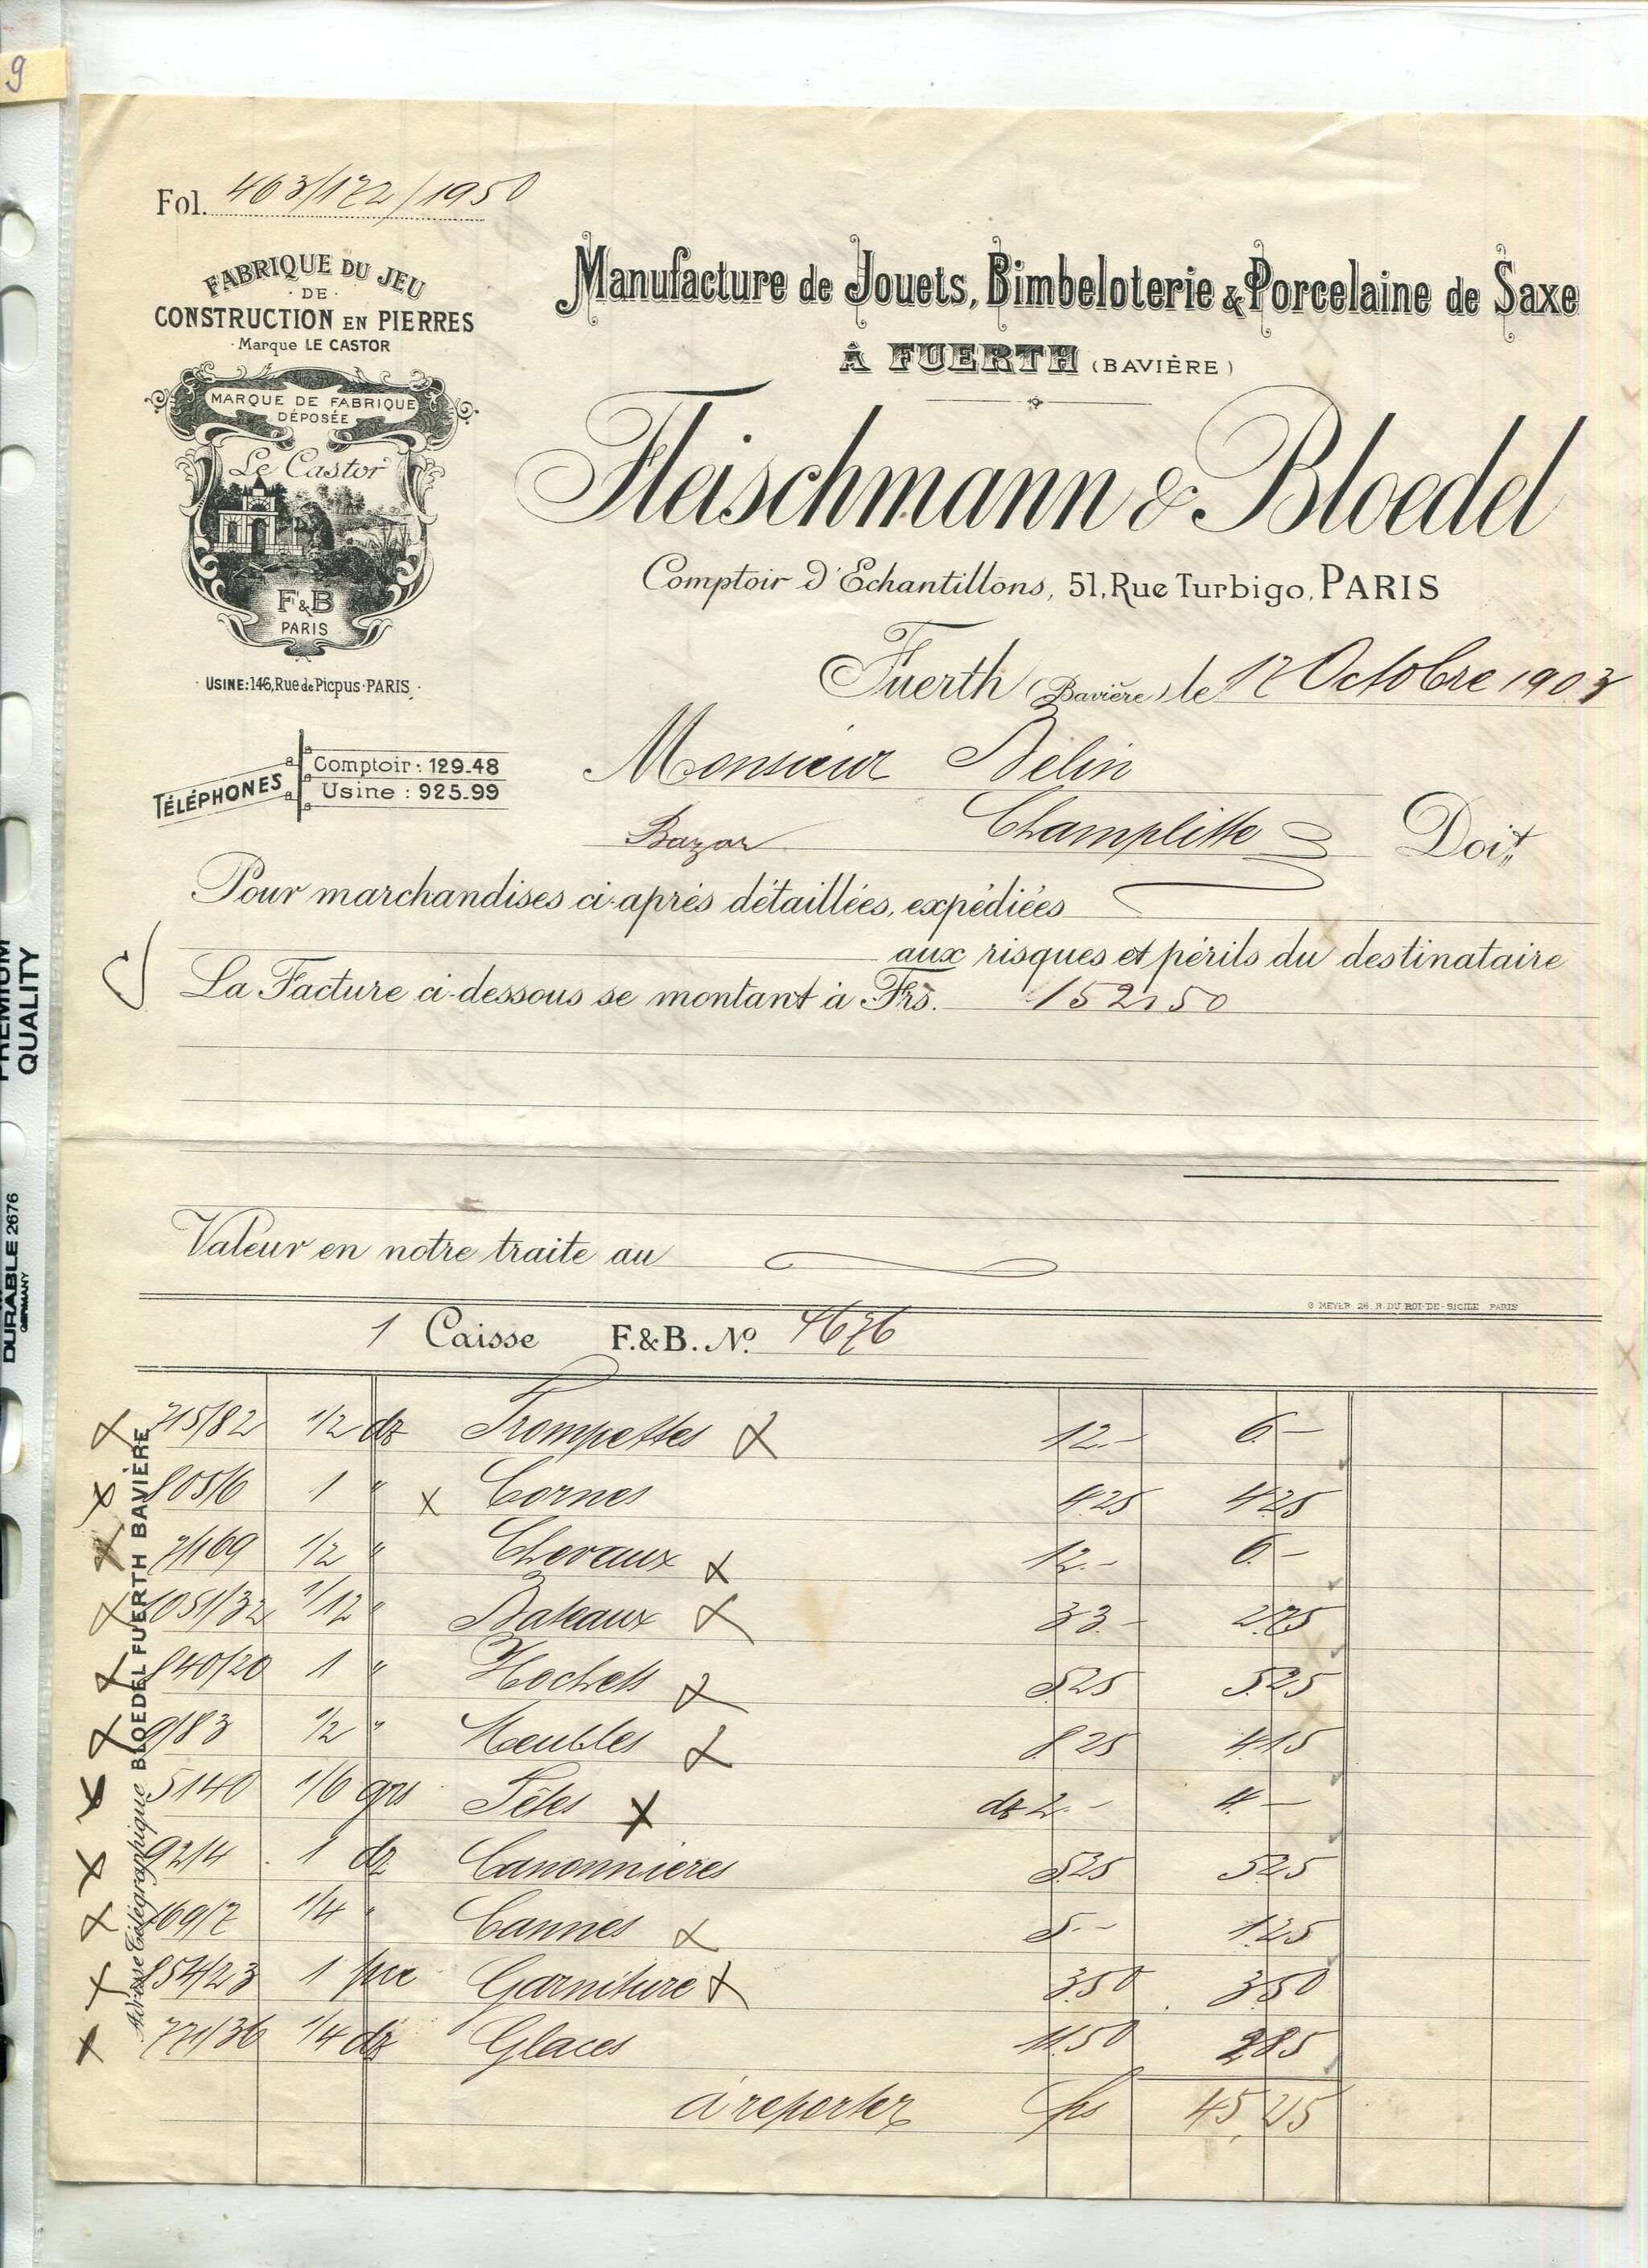 9
Fol. 463/172/1950
FABRIQUE DU JEU
· DE ·
CONSTRUCTION EN PIERRES
· Marque LE CASTOR
MARQUE DE FABRIQUE
DÉPOSÉE
Le Castor
F&B
PARIS
· USINE: 146, Rue de Picpus · PARIS ·
TÉLÉPHONES
Comptoir : 129-48
Usine : 925-99
Manufacture de Jouets, Bimbeloterie & Porcelaine de Saxe
À FUERTH (BAVIÈRE)
Fleischmann & Bloedel
Comptoir d'Echantillons, 51, Rue Turbigo, PARIS
Fuerth (Bavière) le 17 Octobre 1903
Monsieur Belin
Bazar Champlitte Doit
Pour marchandises ci-après détaillées, expédiées
aux risques et périls du destinataire
La Facture ci-dessous se montant à Frs. 152,50
Valeur en notre traite au
G MEYER 26, R DU ROI-DE-SICILE PARIS
1 Caisse F.&B. No. 4676
715/82 1/2 dz Trompettes 12.- 6.-
805/6 1 " Cornes 4.25 4.25
7/169 1/2 " Chevaux 12.- 6.-
1051/32 1/12 " Bateaux 33.- 2.75
840/20 1 " Hochets 5.25 5.25
9/83 1/2 " Meubles 8.25 4.15
5140 1/6 grs Têtes dz 2.- 4.-
92/4 1 dz Canonnieres 5.25 5.25
169/7 1/4 " Cannes 5.- 1.25
854/23 1 pce Garniture 3.50 3.50
771/36 1/4 dz Glaces 11.50 2.85
à reporter frs 45,25
Adresse Télégraphique BLOEDEL FUERTH BAVIÈRE
PREMIUM
QUALITY
DURABLE 2676
GERMANY